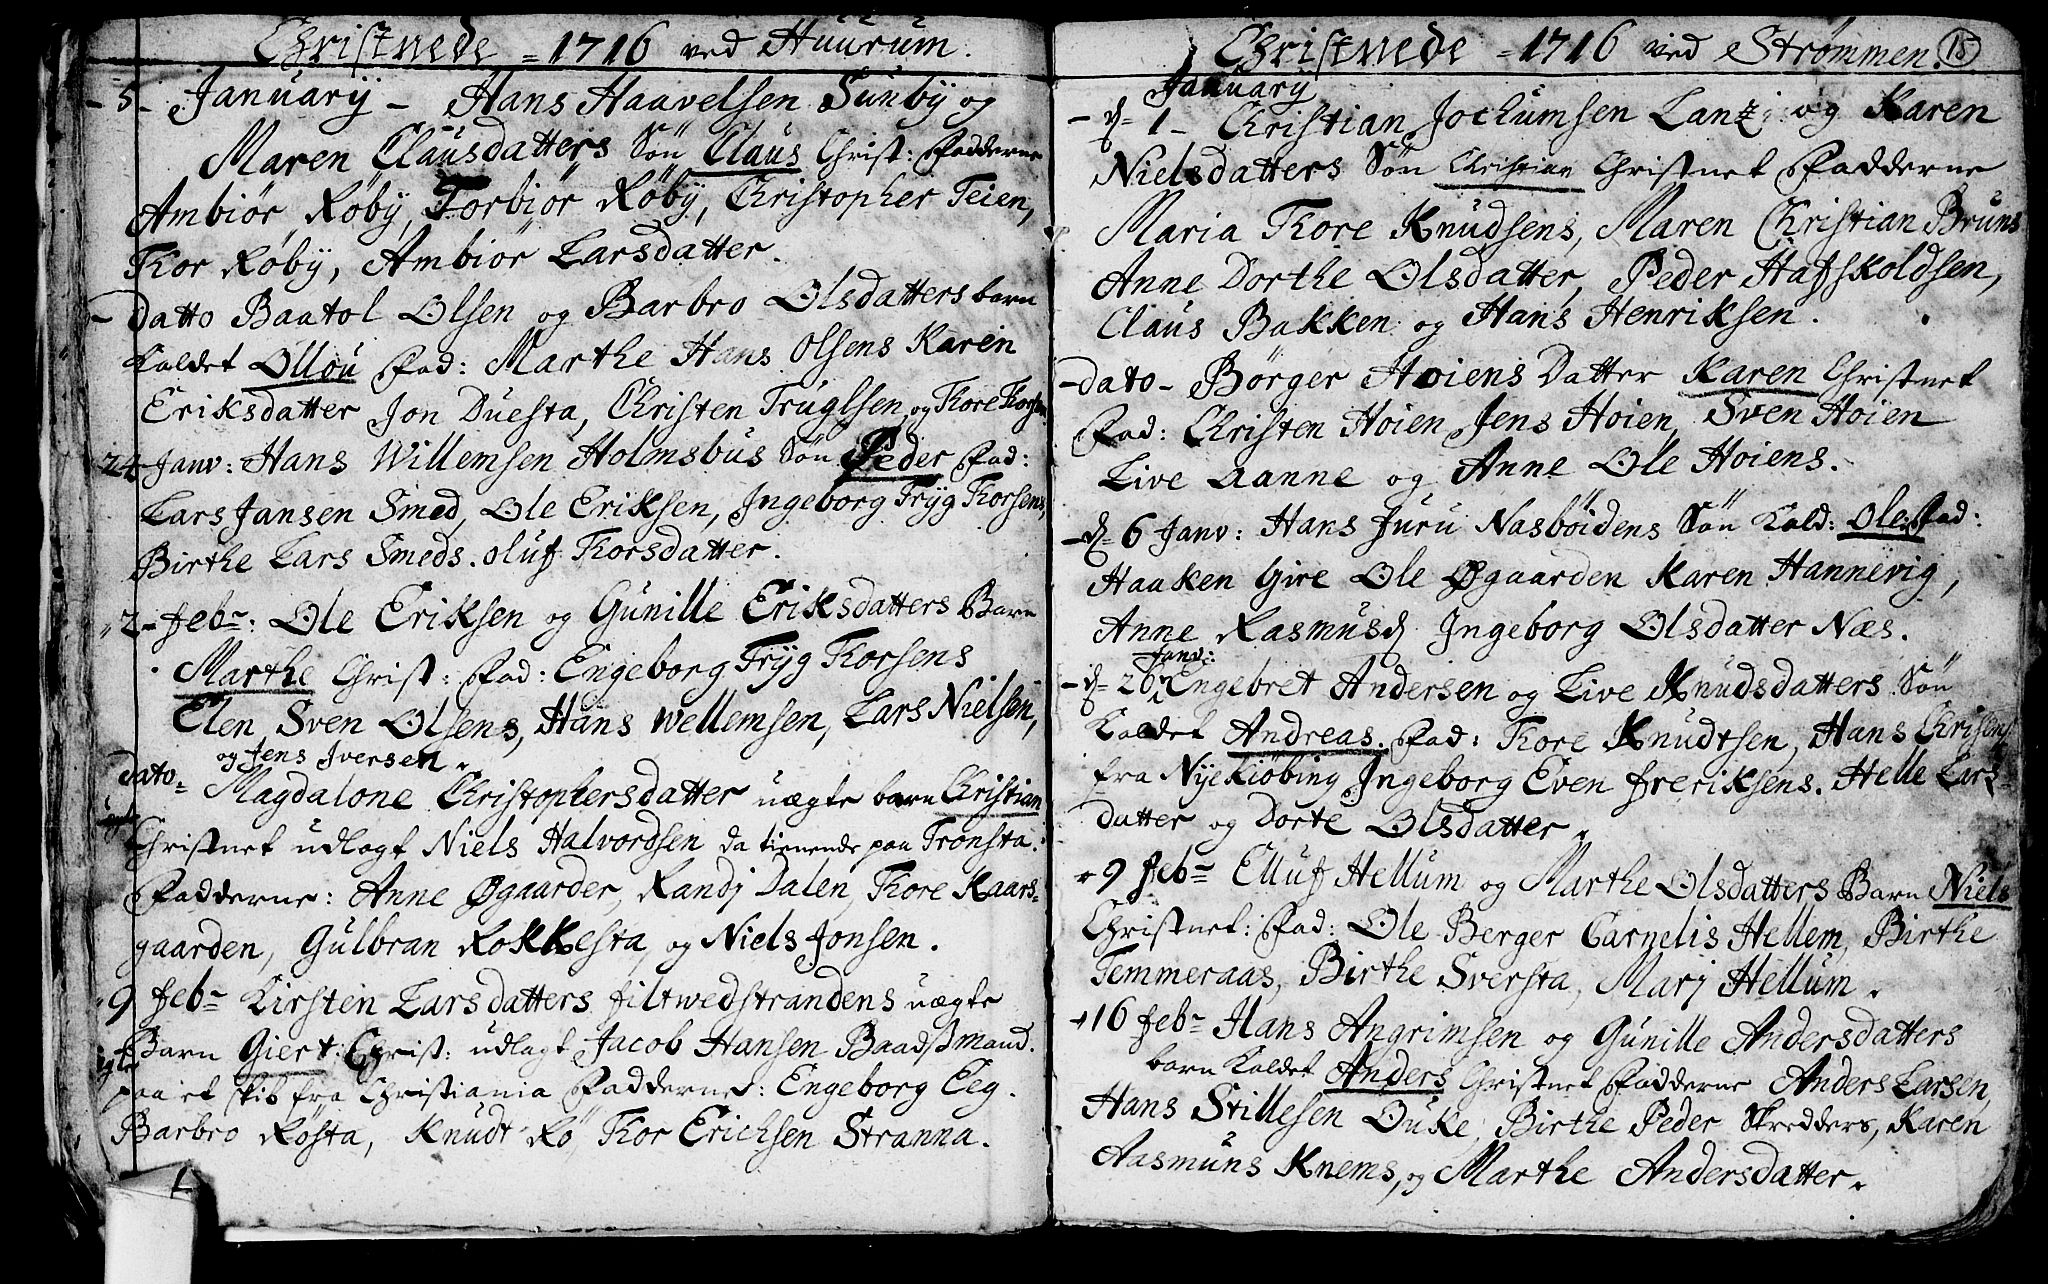 Christnede = 1716 ved Huurum.
- 5 - January - Hans Haavelsen Sunby og
Maren Clausdatters Søn Claus Christ: Fadderne
Ambiør Røby, Torbiør Røby, Christopher Teien,
Thor Røby, Ambiør Larsdatter.
- Datto Baatol Olsen og Barbro Olsdatters barn
Kaldet Ollou Fad: Marthe Hans Olsens Karen
Eriksdatter Jon Duesta, Christen Truglsen, og Thore Thorsen
24 Janv: Hans Willemsen Holmsbus Søn Peder Fad:
Lars Jansen Smed, Ole Eriksen, Ingeborg Tryg Thorsens,
Birthe Lars Smeds. Oluf Thorsdatter.
2 - febr: Ole Eriksen og Gunille Eriksdatters Barn
Marthe Christ: Fad: Engeborg Tryg Thorsens
Elen Sven Olsens, Hans Wellemsen, Lars Nielsen,
og Jens Iversen.
dato = Magdalone Christophersdatter uægte barn Christian
Christnet udlagt Niels Halvordsen da tienende paa Tronsta.
Fadderne: Anne Øgaarder, Randj Dalen, Thore Kaars-
gaarden, Gulbran Rokkesta, og Niels Jonsen.
9 febr Kirsten Larsdatters filtwedstrandens uægte
Barn Giert: Christ: udlagt Jacob Hansen Baadsmand.
paa et skib fra Christiania Fadderne: Engeborg Eeg.
Barbro Røsta, Knudt Rø, Thor Erichsen Stranna.
Christnede = 1716 ved Strømmen. 15
January
- d= 1 - Christian Jochumsen Lanz og Karen
Nielsdatters Søn Christian Christnet Fadderne
Maria Thore Knudsens, Maren Christian Bruns
Anne Dorthe Olsdatter, Peder Hafskoldsen,
Claus Bakken og Hans Henriksen.
- dato - Børger Høiens Datter Karen Christnet
Fad: Christen Høien, Jens Høien, Sven Høien
Live Aanne og Anne Ole Høiens.
- d= 6 Janv: Hans Juru Nasbøidens Søn Kald: Ole: Fad:
Haaken Gire Ole Øgaarden Karen Hannevig,
Anne Rasmusd Ingeborg Olsdatter Næs.
Janv:
- d= 26 Engebret Andersen og Live Knudsdatters Søn
Kaldet Andreas. Fad: Thore Knudtsen, Hans Chrisens
fra Nyekiøbing Ingeborg Even freriksens. Helle Lars-
datter og Dorte Olsdatter.
9 febr Elluf Hellum og Marthe Olsdatters Barn Niels
Christnet: Fad: Ole Berger Carnelis Hellem, Birthe
Temmeraas, Birthe Sversta, Marj Hellum.
16 febr Hans Angrimsen og Gunille Andersdatters
barn Kaldet Anders Christnet Fadderne Anders Larsen,
Hans Stillesen Duke, Birthe Peder Skredders, Karen
Aasmuns Knems, og Marthe Andersdatter.